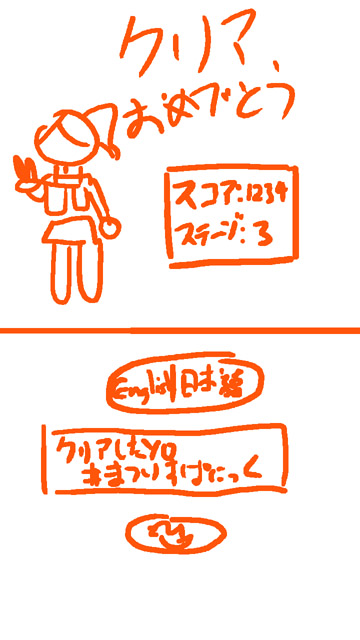 クリア、
おめでとう
スコア:1234
ステージ:3
English/日本語
クリアしたyo
#まつりすぱにっく